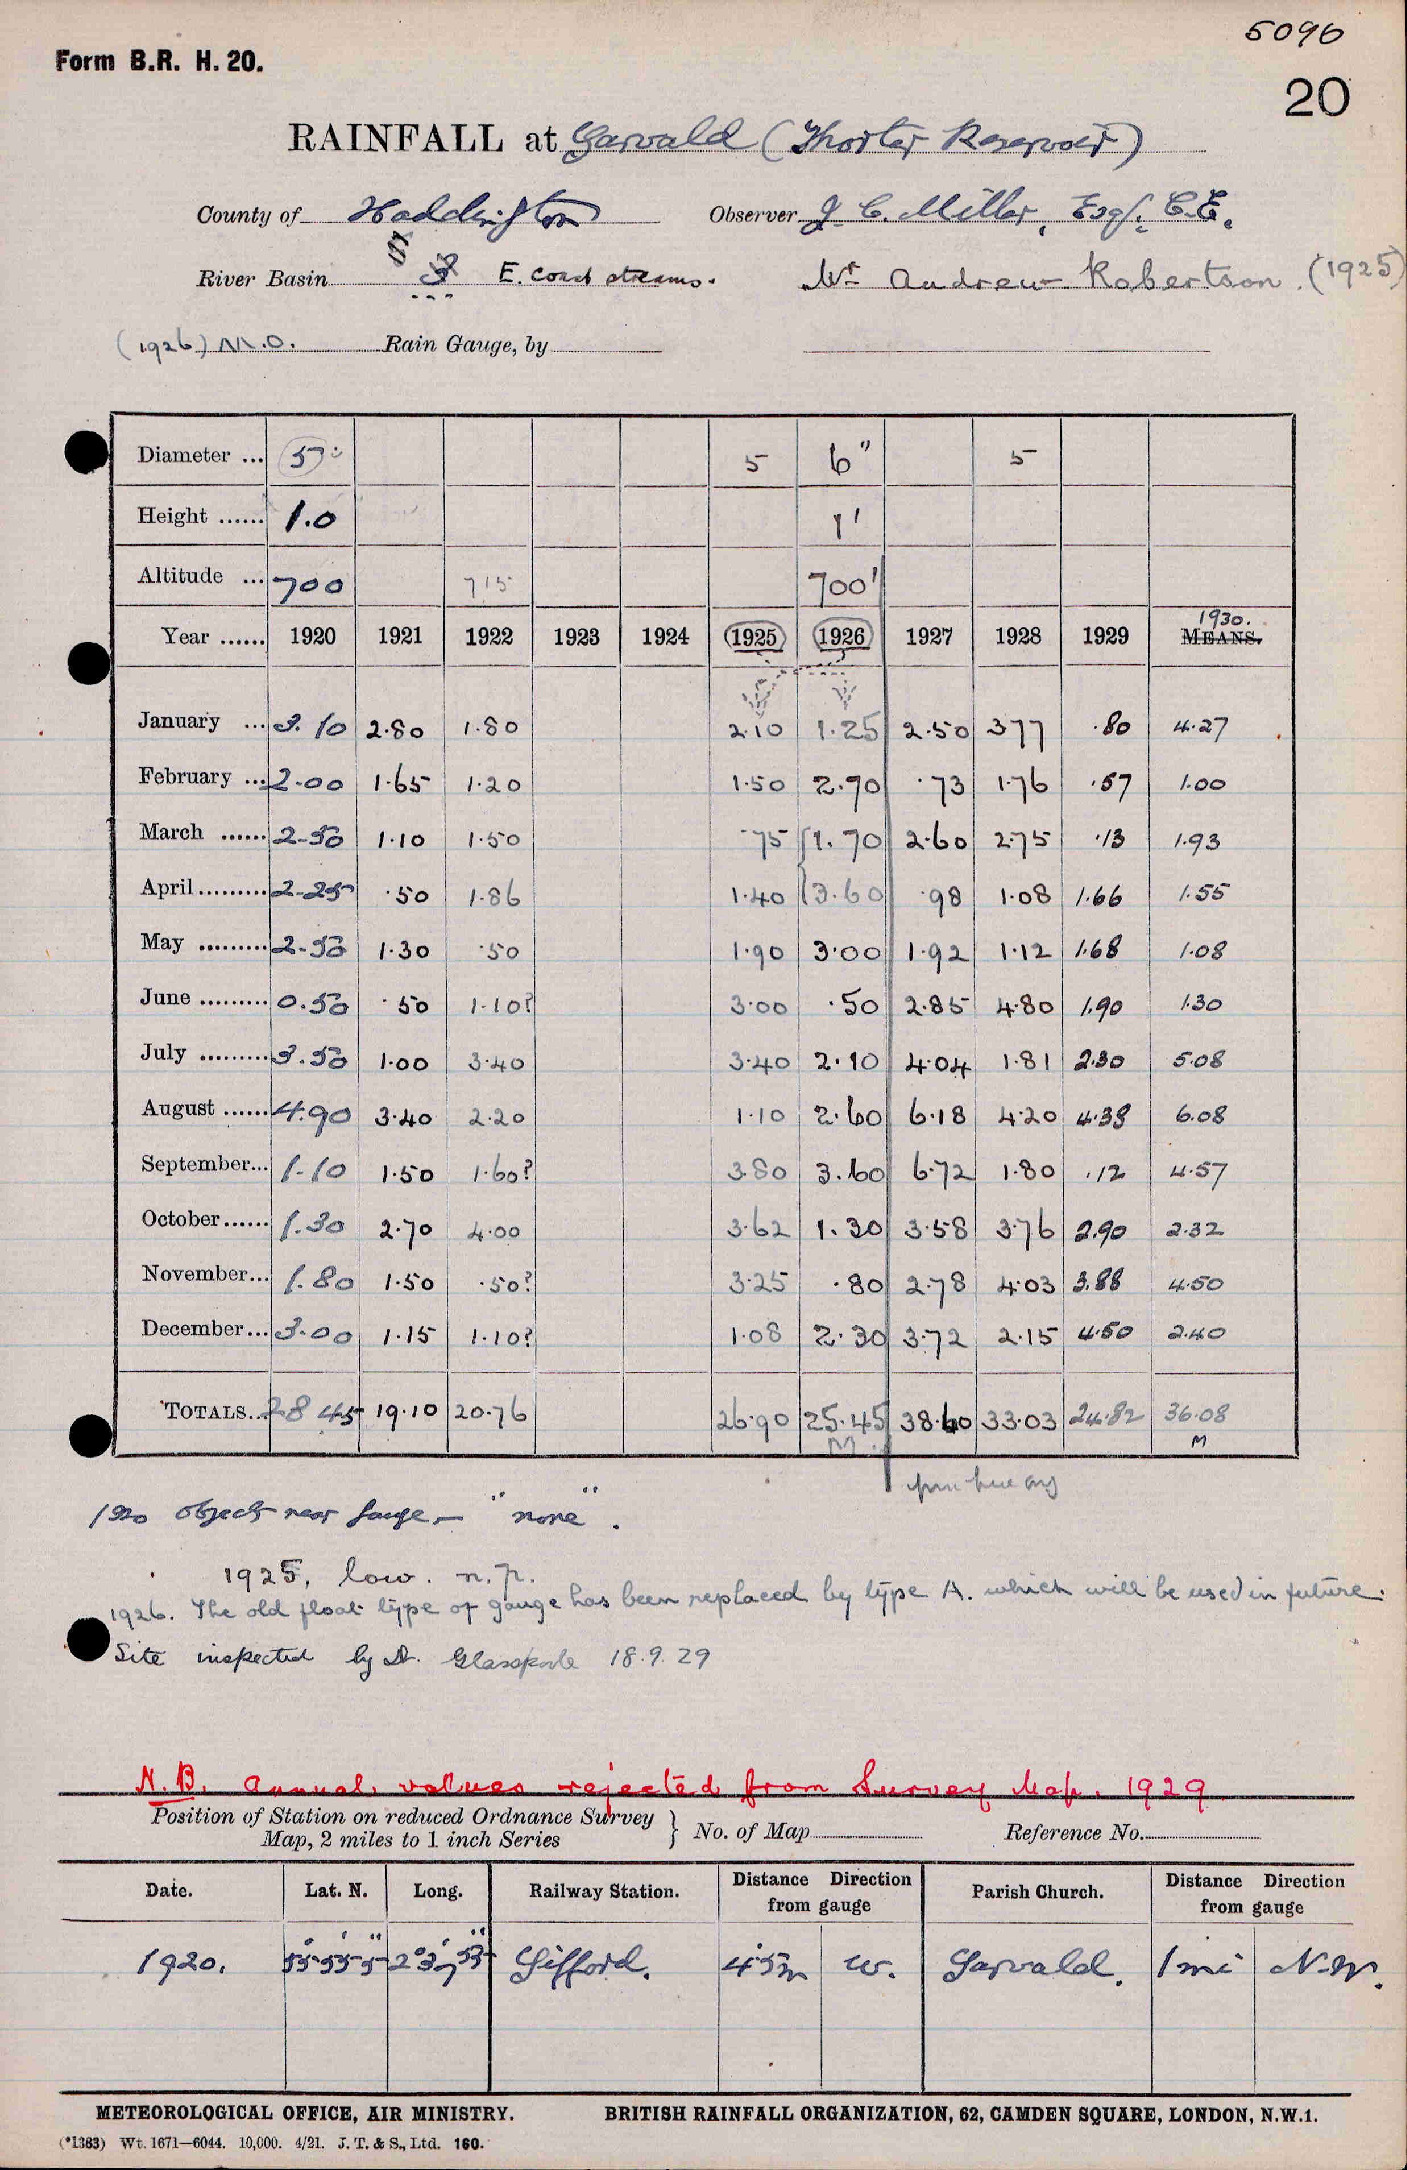 5096
Form B.R. H. 20.
20
RAINFALL at Garvald (Thorter Reservoir)
County of Haddington Observer J. C. Miller, Esq. C.E.
River Basin E. coast streams. Mr Andrew Robertson (1925)
(1926) M.O. Rain Gauge, by
Diameter ... 5" 5 6" 5
Height ...... 1.0 1'
Altitude ... 700 715 700'
1930.
Year ...... 1920 1921 1922 1923 1924 1925 1926 1927 1928 1929 MEANS.
January ... 3.10 2.80 1.80 2.10 1.25 2.50 3.77 .80 4.27
February ... 2.00 1.65 1.20 1.50 2.70 .73 1.76 .57 1.00
March ...... 2.50 1.10 1.50 .75 1.70 2.60 2.75 .13 1.93
April ......... 2.25 .50 1.86 1.40 3.60 .98 1.08 1.66 1.55
May ......... 2.50 1.30 .50 1.90 3.00 1.92 1.12 1.68 1.08
June ......... 0.50 .50 1.10? 3.00 .50 2.85 4.80 1.90 1.30
July ......... 3.50 1.00 3.40 3.40 2.10 4.04 1.81 2.30 5.08
August ...... 4.90 3.40 2.20 1.10 2.60 6.18 4.20 4.38 6.08
September... 1.10 1.50 1.60? 3.80 3.60 6.72 1.80 .12 4.57
October...... 1.30 2.70 4.00 3.62 1.30 3.58 3.76 2.90 2.32
November... 1.80 1.50 .50? 3.25 .80 2.78 4.03 3.88 4.50
December... 3.00 1.15 1.10? 1.08 2.30 3.72 2.15 4.50 2.40
TOTALS... 28 45 19.10 20.76 26.90 25.45 38.60 33.03 24.82 36.08
M M
1920 objects near gauge — "none".
1925, low. n.p.
1926. The old float type of gauge has been replaced by type A. which will be used in future.
Site inspected by Dr. Glasspoole 18.9.29
N.B. Annual values rejected from Survey Map. 1929
Position of Station on reduced Ordnance Survey
Map, 2 miles to 1 inch Series } No. of Map Reference No.
Date. Lat. N. Long. Railway Station. Distance Direction from gauge Parish Church. Distance Direction from gauge
1920. 55° 55' 5" 2° 37' 53" Gifford. 4.5m W. Garvald. 1 mi N.W.
METEOROLOGICAL OFFICE, AIR MINISTRY. BRITISH RAINFALL ORGANIZATION, 62, CAMDEN SQUARE, LONDON, N.W.1.
(*1383) Wt. 1671—6044. 10,000. 4/21. J. T. & S., Ltd. 160.